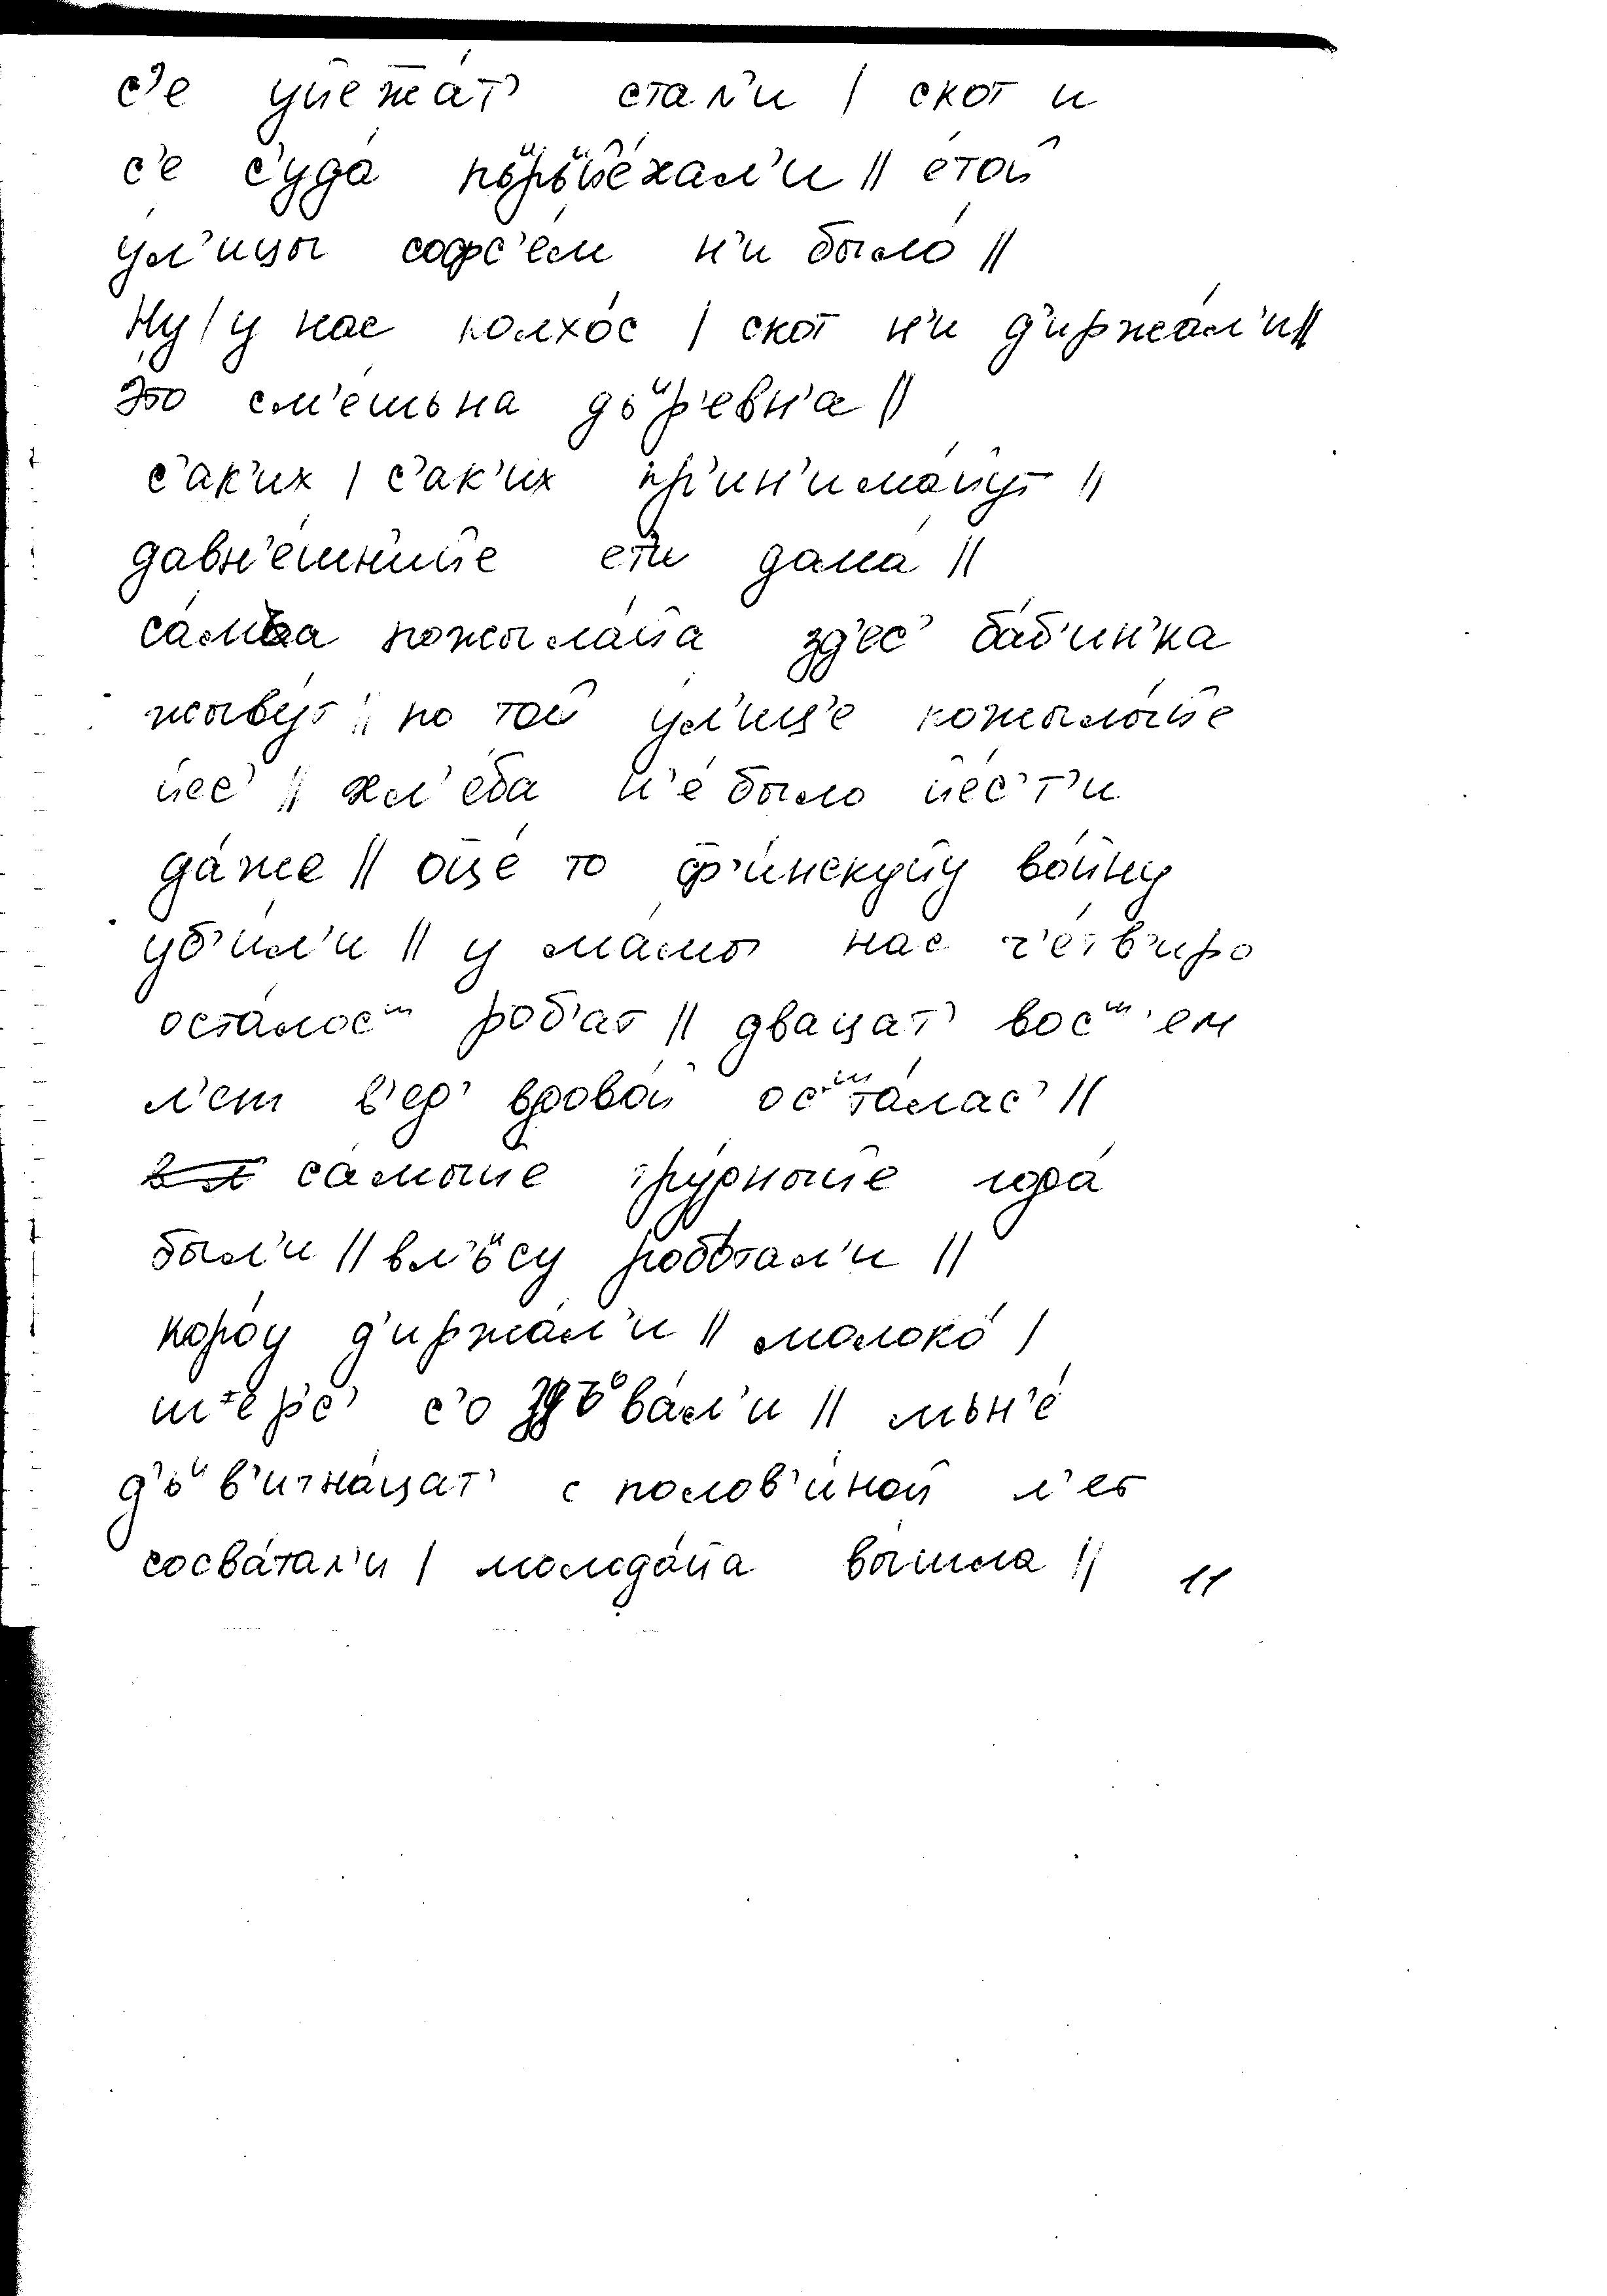 с'е уйежа́т' стал'и | скот и
с'е с'уда́ пьᵘрьᵘйе́хал'и || е́той
у́л'ицы софс'е́м н'и было́ ||
Ну | у нас колхо́с | скот н'и д'иржа́л'и ||
Э́то см'е́шьна дьᵘр'е́вн'а ||
с'а́к'их | с'а́к'их пр'ин'има́йут ||
давн'е́шн'ийе ети дама́ ||
са́мьа пожыла́йа зд'ес' ба́б'ин'ка
жыву́т || по той у́л'иц'е пожылы́йе
йес' || хл'е́ба н'е́ было йе́с'т'и
да́же || оце́ то ф'и́нскуйу во́йну
уб'и́л'и || у ма́мы нас ч'е́тв'иро
оста́лосᵐ роб'а́т || два́цат' восᵐ'ем
л'ет в'ед' вдово́й осᵐта́лас' ||
са́мыйе тру́дныйе года́
был'и || в л'ьᵘсу́ робо́тал'и ||
коро́у д'иржа́л'и || молоко́ |
ше́рс' с'о здъᵒва́л'и || мьн'е́
д'ьᵘв'итна́цат' с полов'и́ной л'ет
сосва́тал'и | молода́йа вы́шла || 11